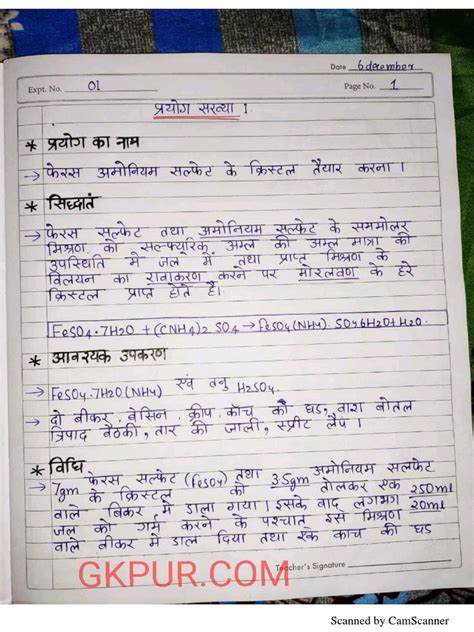 Date 6 december
Expt. No. 01
Page No. 1
प्रयोग सख्या 1.
* प्रयोग का नाम
→ फेरस अमोनियम सल्फेट के क्रिस्टल तैयार करना ।
* सिद्धांत
→ फेरस सल्फेट तथा अमोनियम सल्फेट के सममोलर
मिश्रण को सल्फ्यूरिक अम्ल की अम्ल मात्रा की
उपस्थिति मे जल में तथा प्राप्त मिश्रण के
विलयन का रावाकरण करने पर मोरलवण के हरे
क्रिस्टल प्राप्त होते है।
FeSO4·7H2O + (CNH4)2 SO4 → FeSO4(NH4). SO4 6H2O+H2O.
* आवश्यक उपकरण
→ FeSO4.7H2O(NH4) एवं तनु H2SO4.
→ दो बीकर, बेसिन, कीप, कॉच की छड, वाश बोतल
त्रिपाद बैठकी, तार की जाली, स्प्रीट लैंप ।
* विधि
→ फेरस सल्फेट (FeSO4) तथा अमोनियम सल्फेट
7gm के क्रिस्टल को 3.5gm तोलकर एक 250ml
वाले बिकर मे डाला गया। इसके बाद लगभग 20ml
जल को गर्म करने के पश्चात् इस मिश्रण
वाले बीकर मे डाल दिया तथा एक काच की छड
Teacher's Signature
GKPUR.COM
Scanned by CamScanner